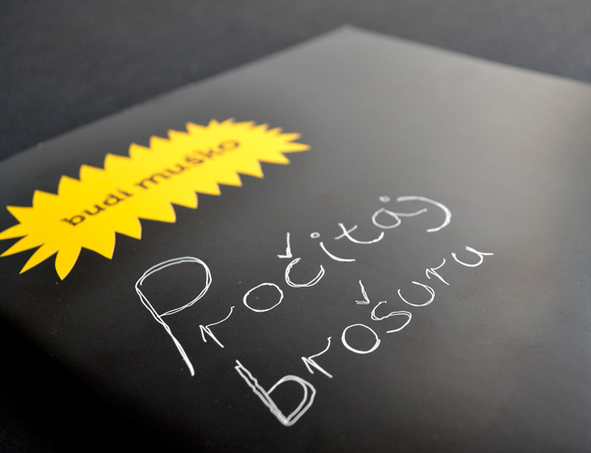 budi muško
Pročitaj
brošuru